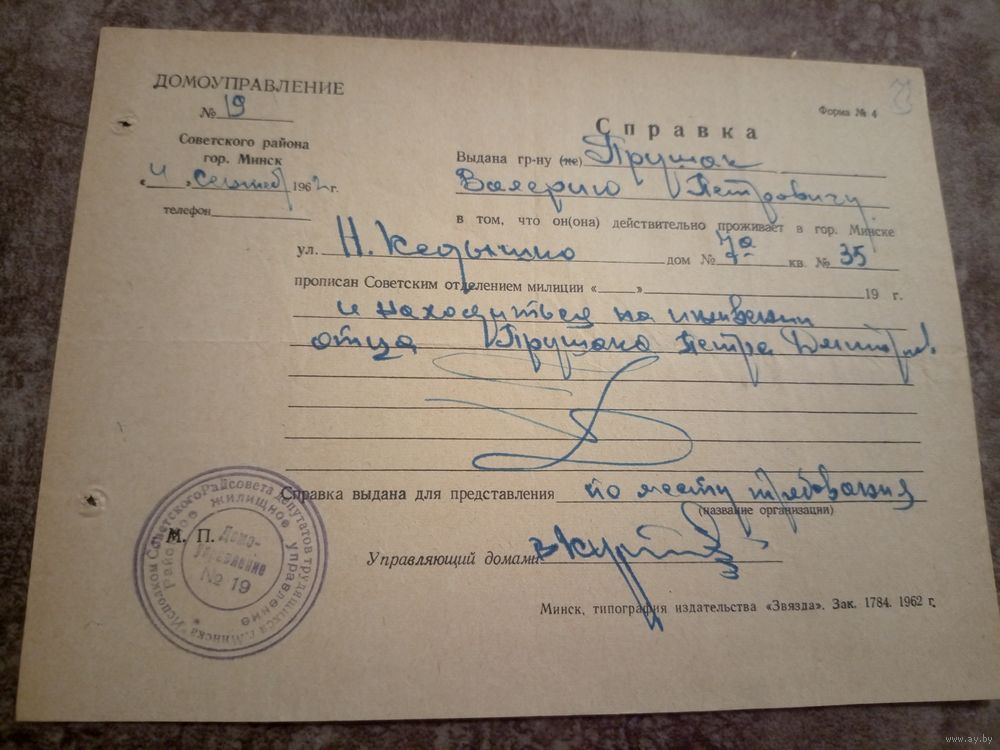 ДОМОУПРАВЛЕНИЕ
№ 19
Советского района
гор. Минск
« 4 » сентяб 1962 г.
телефон
Форма № 4
Справка
Выдана гр-ну (не) Прушак
Валерию Петровичу
в том, что он(она) действительно проживает в гор. Минске
ул. Н. Кедышко дом № 7а кв. № 35
прописан Советским отделением милиции « » 19 г.
и находиться на иждивении
отца Прушака Петра
Справка выдана для представления по месту требования
(название организации)
М. П.
Управляющий домами
Исполком Советского Райсовета депутатов трудящихся г. Минска
Районное жилищное управление
Домо-
управление
№ 19
Минск, типография издательства «Звязда». Зак. 1784. 1962 г.
www.ay.by